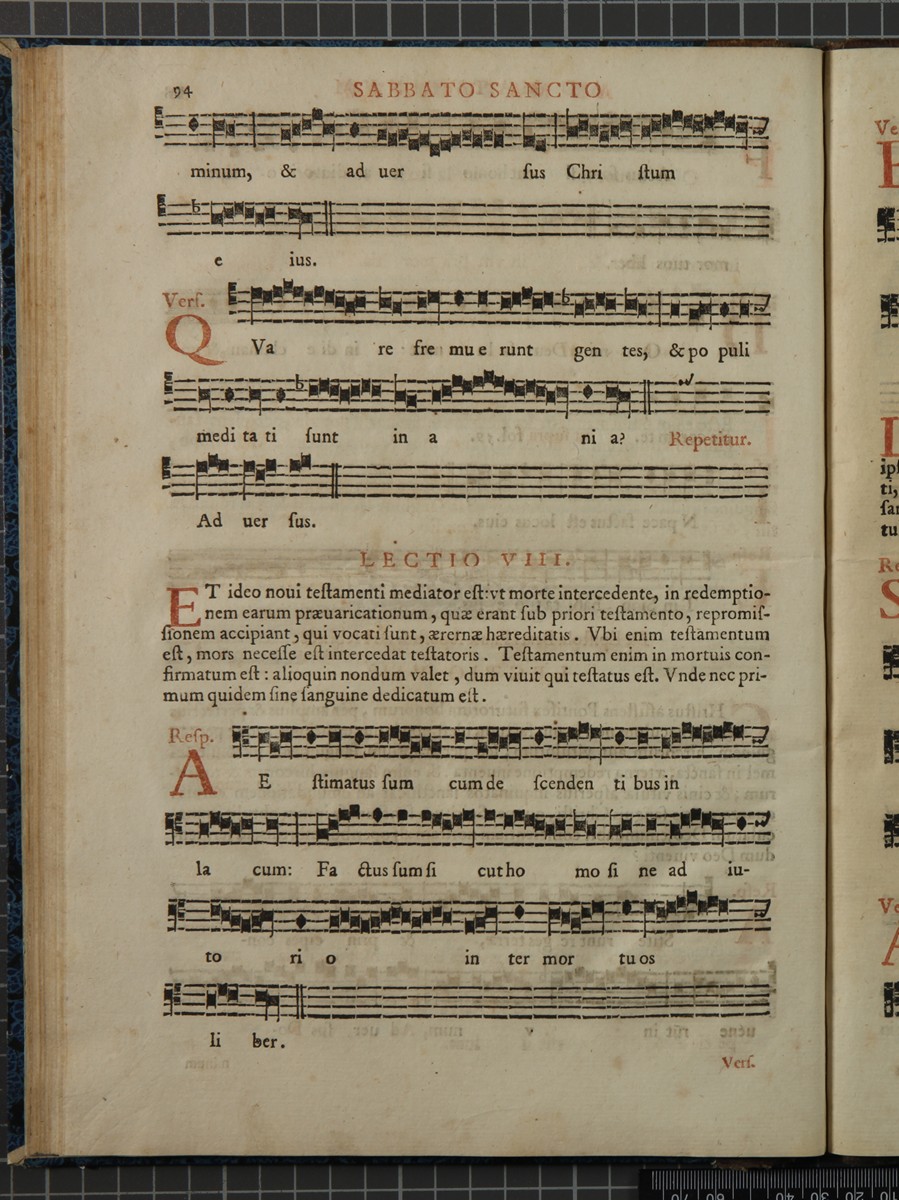 94 SABBATO SANCTO
minum, & ad uer ſus Chri ſtum
e ius.
Verſ.
QVa re fre mu e runt gen tes, & po puli
medi ta ti ſunt in a ni a? Repetitur.
Ad uer ſus.
LECTIO VIII.
ET ideo noui teſtamenti mediator eſt: vt morte intercedente, in redemptio-
nem earum præuaricationum, quæ erant ſub priori teſtamento, repromiſ-
ſionem accipiant, qui vocati ſunt, ærernæ hæreditatis. Vbi enim teſtamentum
eſt, mors neceſſe eſt intercedat teſtatoris. Teſtamentum enim in mortuis con-
firmatum eſt: alioquin nondum valet, dum viuit qui teſtatus eſt. Vnde nec pri-
mum quidem ſine ſanguine dedicatum eſt.
Reſp.
AE ſtimatus ſum cum de ſcenden ti bus in
la cum: Fa ctus ſum ſi cut ho mo ſi ne ad iu-
to ri o in ter mor tu os
li ber.
Verſ.